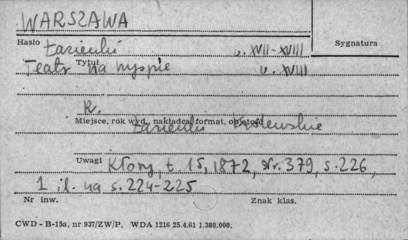 WARSZAWA
Hasło Łazienki w. XVII-XVIII Sygnatura
Tytuł Teatr na wyspie w. XVIII
R.
Miejsce, rok wyd., nakładca, format, objętość
Łazienki Królewskie
Uwagi Kłosy, t. 15, 1872, Nr. 379, s. 226,
1 il. na s. 224-225
Nr inw. Znak klas.
CWD - B-15a, nr 937/ZW/P, WDA 1216 25.4.61 1.380.000.